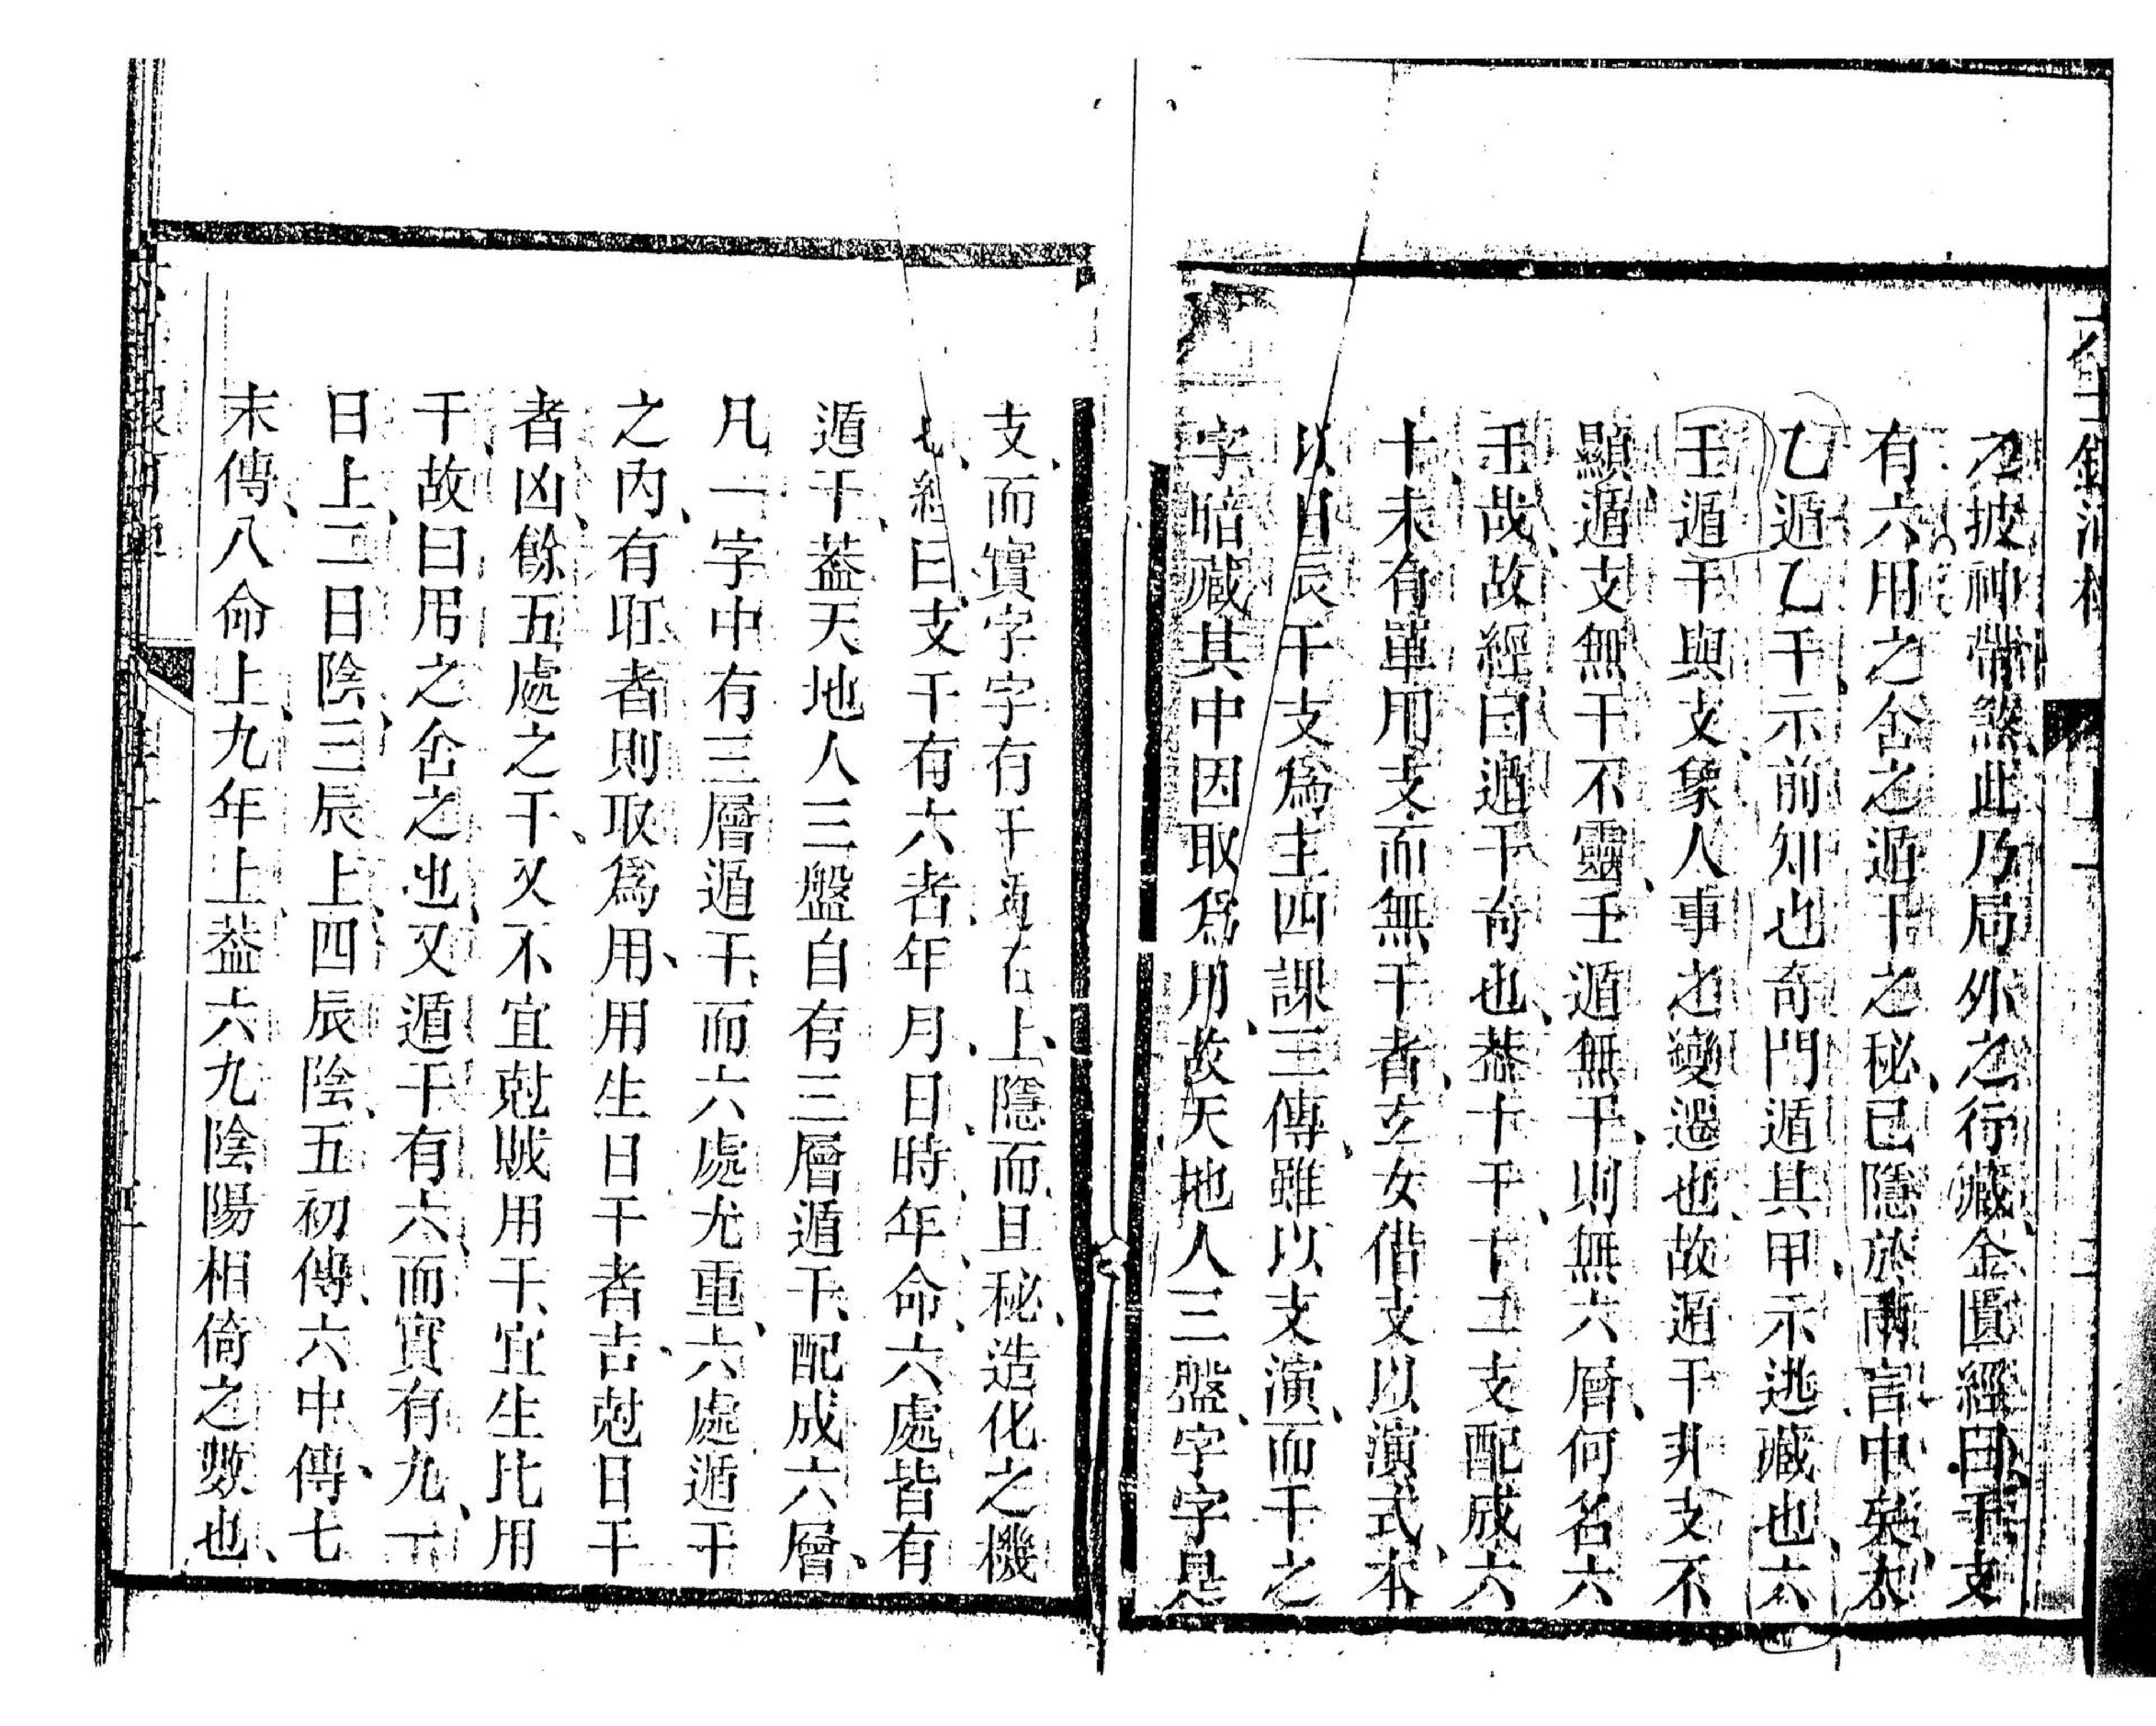 披神帶煞此乃局外之行藏金匱經曰干支
有六用之舍之遁干之秘已隱於兩言中矣太
乙遁乙干示前知也奇門遁其甲示逃藏也六
壬遁干與支象人事之變遷也故遁干非支不
顯遁支無干不靈壬遁無干則無六層何名六
壬哉故經曰遁干奇也葢十干十二支配成六
十未有單用支而無干者玄女借支以演式本
以日辰干支爲主四課三傳雖以支演而干之
字暗藏其中因取爲用故天地人三盤字字是
支而實字字有干遁在上隱而且秘造化之機
也經曰支干有六者年月日時年命六處皆有
遁干葢天地人三盤自有三層遁干配成六層
凡一字中有三層遁干而六處尤重六處遁干
之內有旺者則取爲用用生日干者吉尅日干
者凶餘五處之干又不宜尅賊用干宜生比用
干故曰用之舍之也又遁干有六而實有九一
日上二日陰三辰上四辰陰五初傳六中傳七
末傳八命上九年上葢六九陰陽相倚之數也